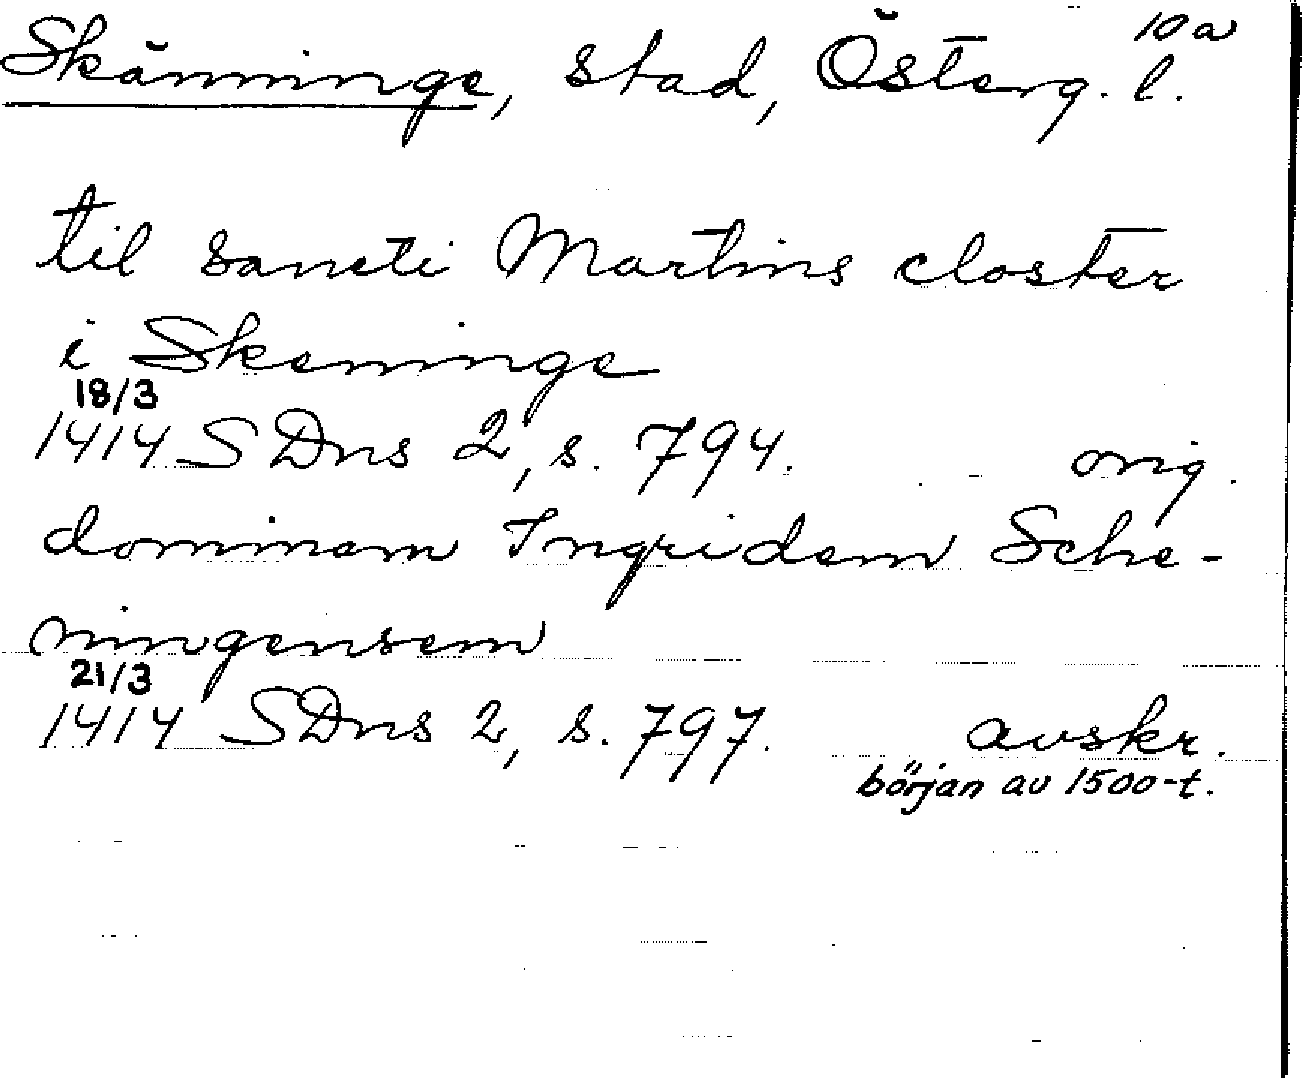 10a
Skänninge, stad, Österg. l.
til sancti Martins closter
i Skeninge
18/3
1414 SDns 2, s. 794. orig.
dominam Ingridem Sche-
ningensem
21/3
1414 SDns 2, s. 797. avskr.
början av 1500-t.